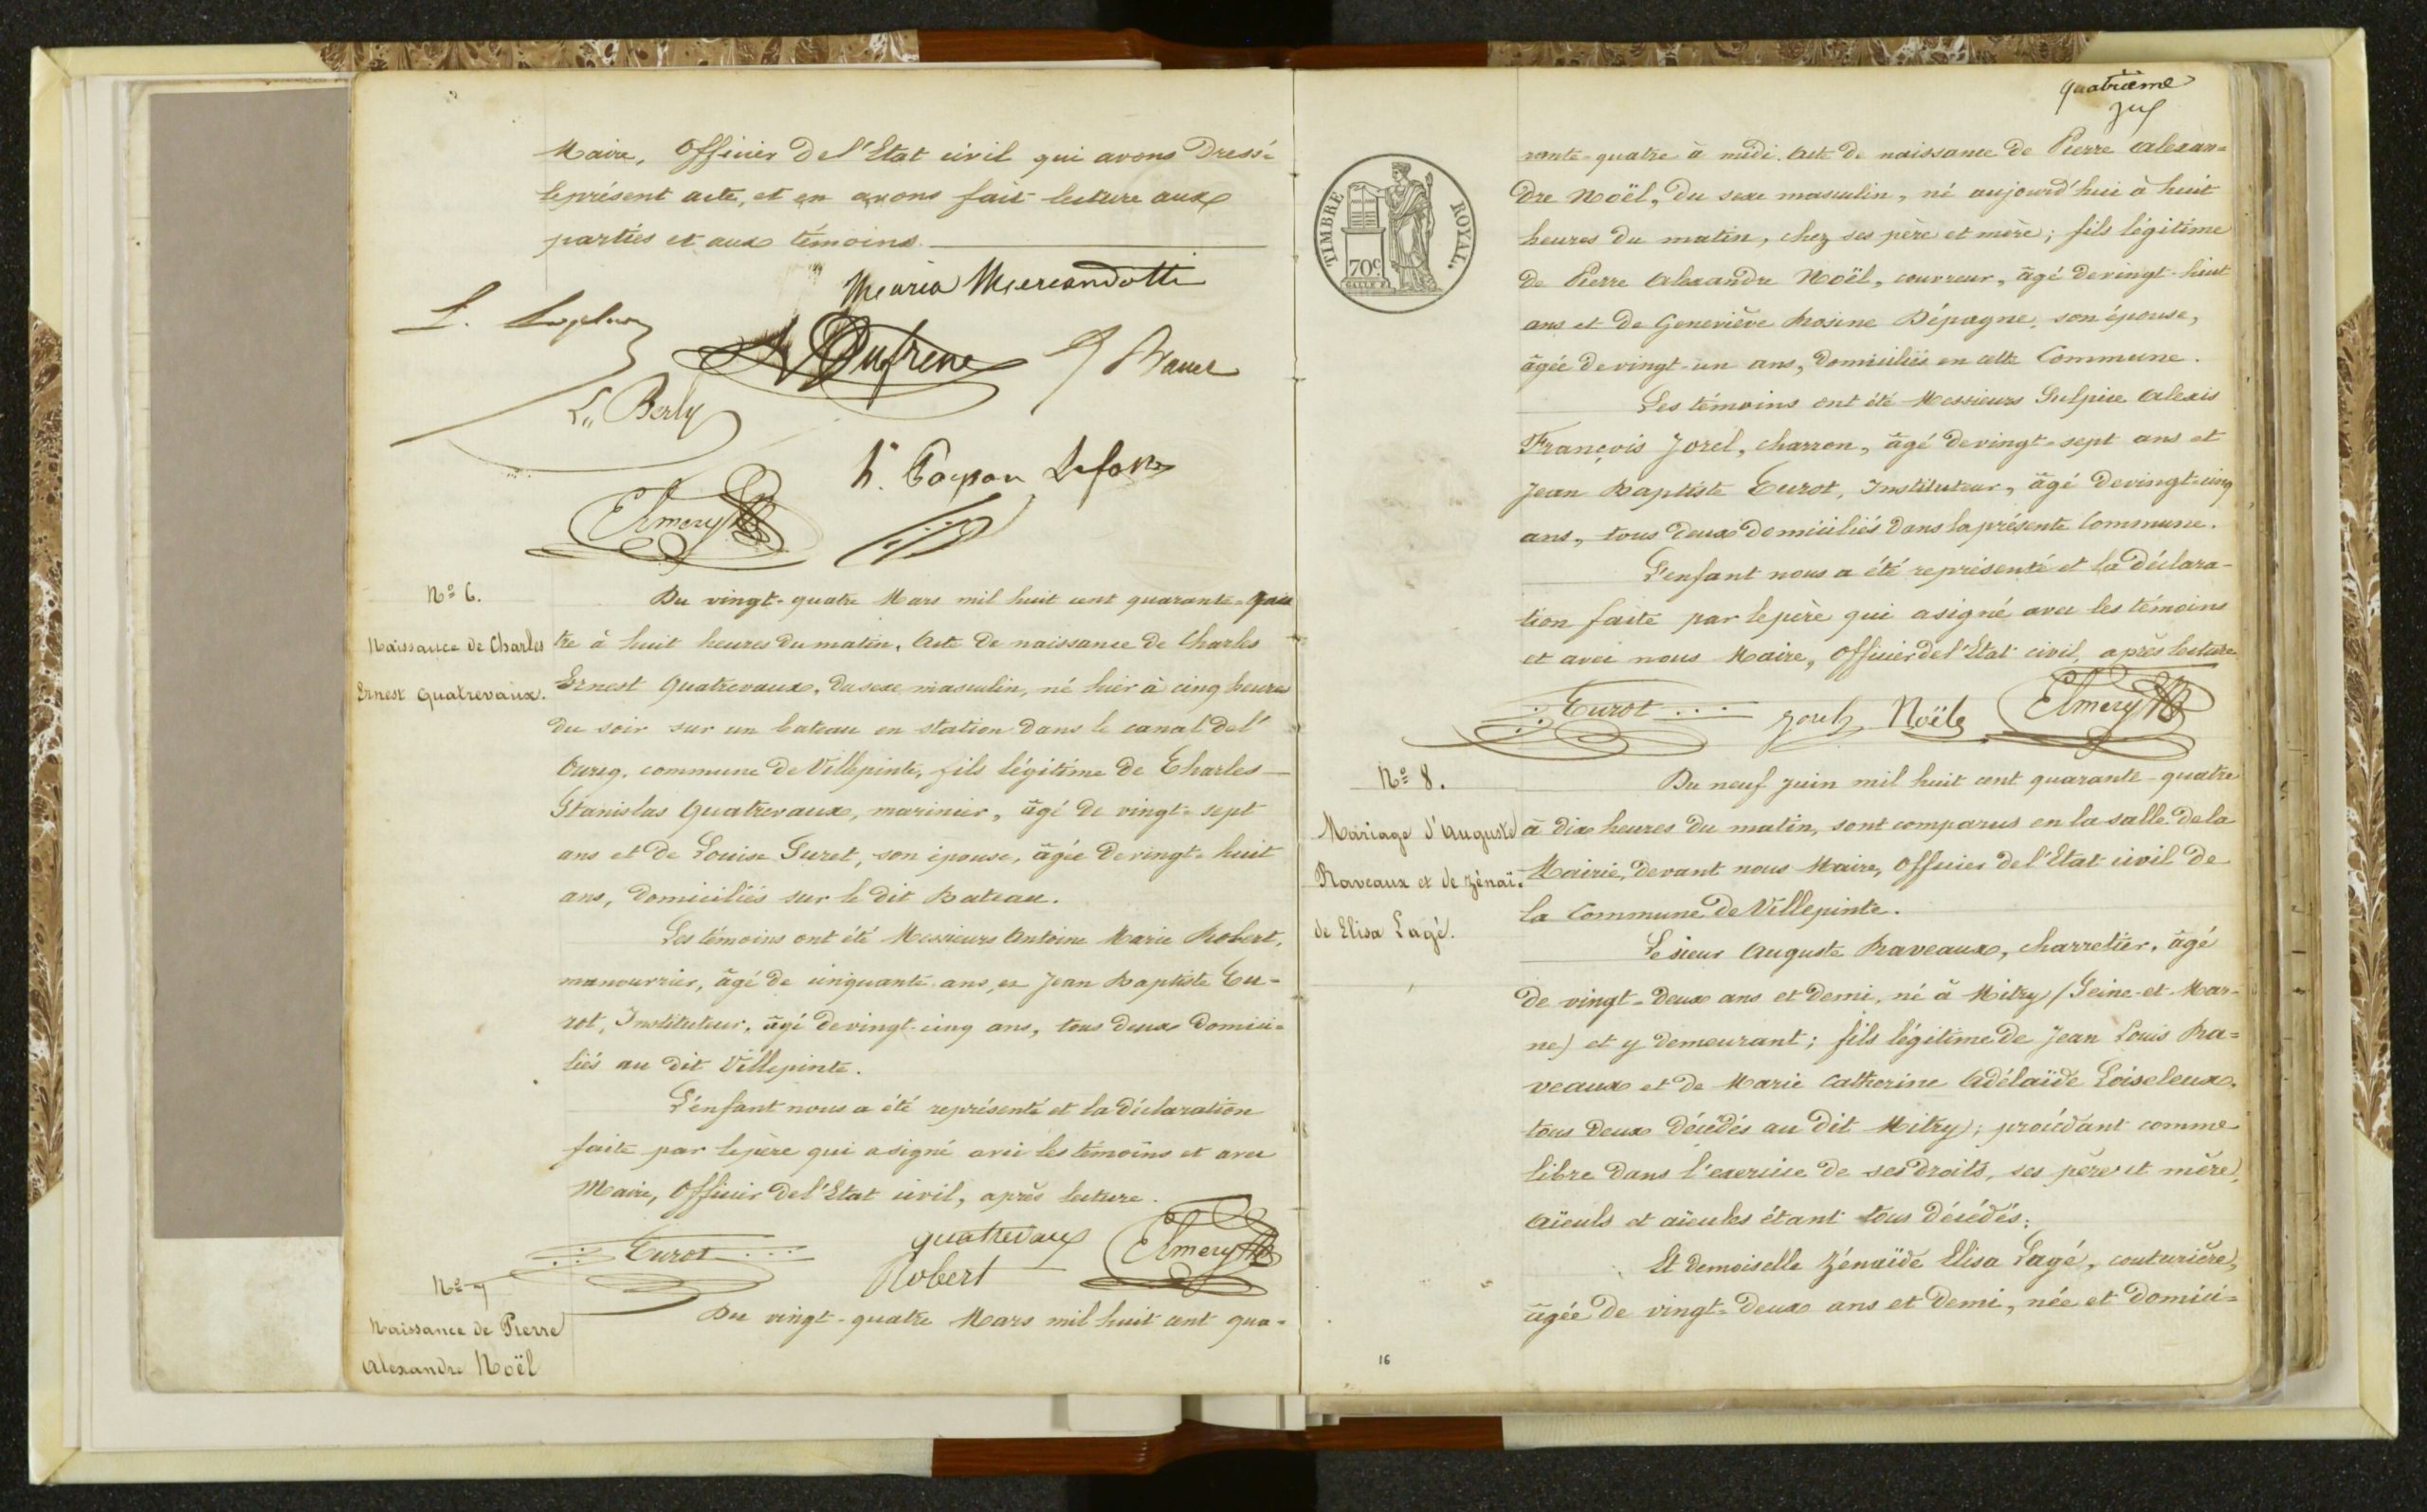 Maire, Officier de l'Etat civil qui avons dressé
le présent acte, et en avons fait lecture aux
parties et aux témoins.
Maria Mercandotti
L.
A Dufrene
L. Berly
h. Lafon
Elmery
N.º 6.
Naissance de Charles
Ernest Quatrevaux.
Du vingt-quatre Mars mil huit cent quarante-qua
tre à huit heures du matin, Acte de naissance de Charles
Ernest Quatrevaux, du sexe masculin, né hier à cinq heures
du soir sur un bateau en station dans le canal de l'
Ourcq, commune de Villepinte, fils légitime de Charles
Stanislas Quatrevaux, marinier, âgé de vingt-sept
ans et de Louise Suret, son épouse, âgée de vingt-huit
ans, domiciliés sur le dit Bateau.
Les témoins ont été Messieurs Antoine Marie Robert,
manouvrier, âgé de cinquante ans, et Jean Baptiste Eu-
rot, Instituteur, âgé de vingt-cinq ans, tous deux domici-
liés au dit Villepinte.
L'enfant nous a été représenté et la déclaration
faite par le père qui a signé avec les témoins et avec
Maire, Officier de l'Etat civil, après lecture.
Eurot
quatrevaux
Robert
Elmery
N.º 7
Naissance de Pierre
Alexandre Noël
Du vingt-quatre Mars mil huit cent qua-
quatrième
TIMBRE ROYAL.
70c
rante-quatre à midi. Acte de naissance de Pierre Alexan-
dre Noël, du sexe masculin, né aujourd'hui à huit
heures du matin, chez ses père et mère; fils légitime
de Pierre Alexandre Noël, couvreur, âgé de vingt-huit
ans et de Geneviève Rosine Dépagne, son épouse,
âgée de vingt-un ans, domiciliés en cette Commune.
Les témoins ont été Messieurs Sulpice Alexis
François Jorel, charron, âgé de vingt-sept ans et
Jean Baptiste Eurot, Instituteur, âgé de vingt-cinq
ans, tous deux domiciliés dans la présente Commune.
L'enfant nous a été représenté et la déclara-
tion faite par le père qui a signé avec les témoins
et avec nous Maire, Officier de l'Etat civil, après lecture
Eurot
Jorel
Noël
Elmery
N.º 8.
Mariage d'Auguste
Raveaux et de Zénaï-
de Elisa Lagé.
Du neuf Juin mil huit cent quarante-quatre
à dix heures du matin, sont comparus en la salle de la
Mairie, devant nous Maire, Officier de l'Etat civil de
la Commune de Villepinte.
Le sieur Auguste Raveaux, charretier, âgé
de vingt-deux ans et demi, né à Mitry (Seine-et-Mar-
ne) et y demeurant; fils légitime de Jean Louis Ra-
veaux et de Marie Catherine Adélaïde Loiseleux,
tous deux décédés au dit Mitry; procédant comme
libre dans l'exercice de ses droits, ses père et mère,
aïeuls et aïeules étant tous décédés;
Et demoiselle Zénaïde Elisa Lagé, couturière,
âgée de vingt-deux ans et demi, née et domici-
16